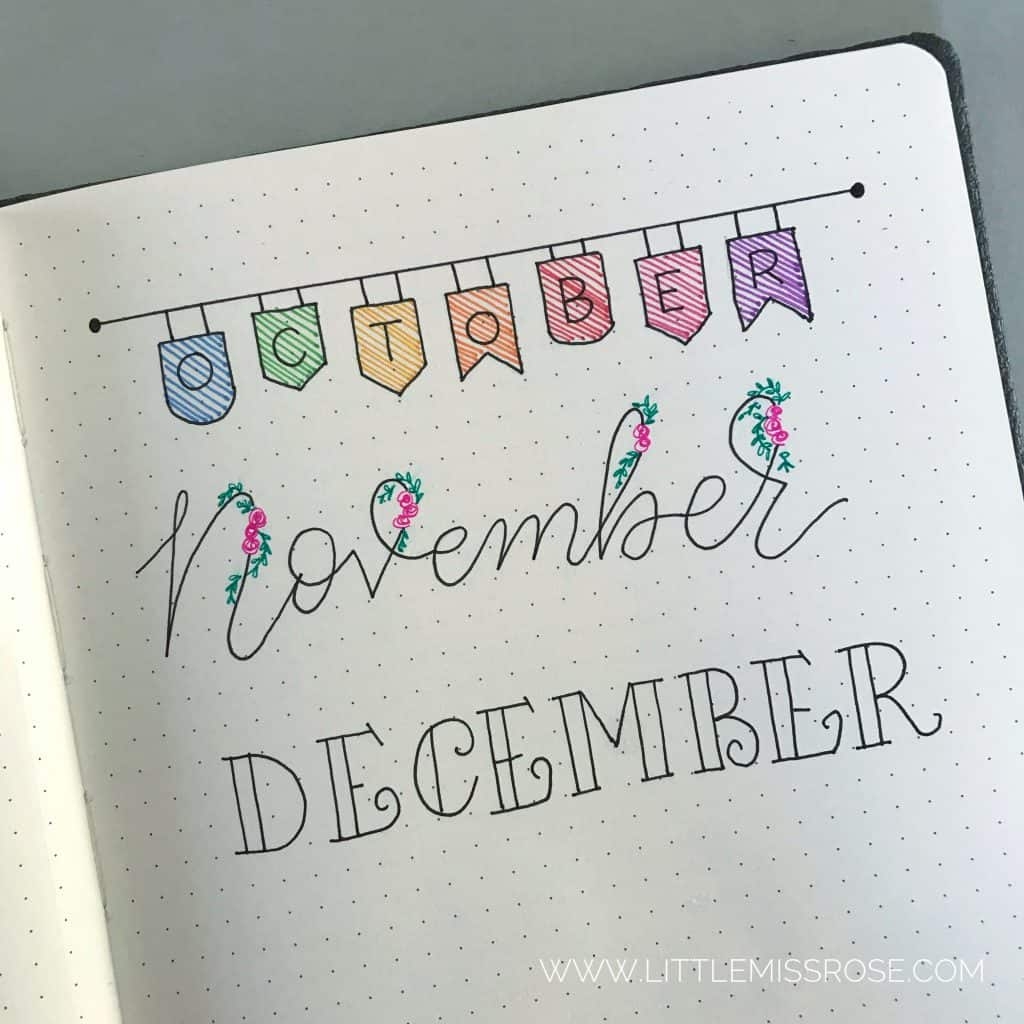 OCTOBER
November
DECEMBER
WWW.LITTLEMISSROSE.COM